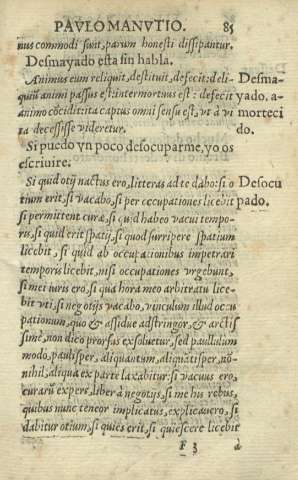 PAVLO MANVTIO. 85
nus commodi fuit, parum honesti dissipantur.
Desmayado esta sin habla.
Animus eum reliquit, destituit, defecit: deli- Desma-
quiũ animi passus est: intermortuus est: defecit yado. a-
animo: cõcidit: ita captus omni sensu est, vt à vi morteci
ta decessisse videretur. do.
Si puedo vn poco desocuparme, yo os
escriuire.
Si quid otij nactus ero, litteras ad te dabo: si o Desocu
tium erit, si vacabo, si per occupationes licebit pado.
si permittent curæ, si quid habeo vacui tempo-
ris, si quid erit spatij, si quod surripere spatium
licebit, si quid ab occupationibus impetrari
temporis licebit, nisi occupationes vrgebunt,
si mei iuris ero, si qua hora meo arbitratu lice-
bit vti, si negotijs vacabo, vinculum illud occu
pationum, quo & assidue adstringor, & arctis
simè, non dico prorsus exsoluetur, sed paullulum
modo, paulisper, aliquantum, aliquātisper, nō-
nihil, aliqua ex parte laxabitur: si vacuus ero,
curarū expers, liber à negotijs, si me his rebus,
quibus nunc teneor implicatus, explicauero, si
dabitur otium, si quies erit, si quiescere licebit
F 3 à